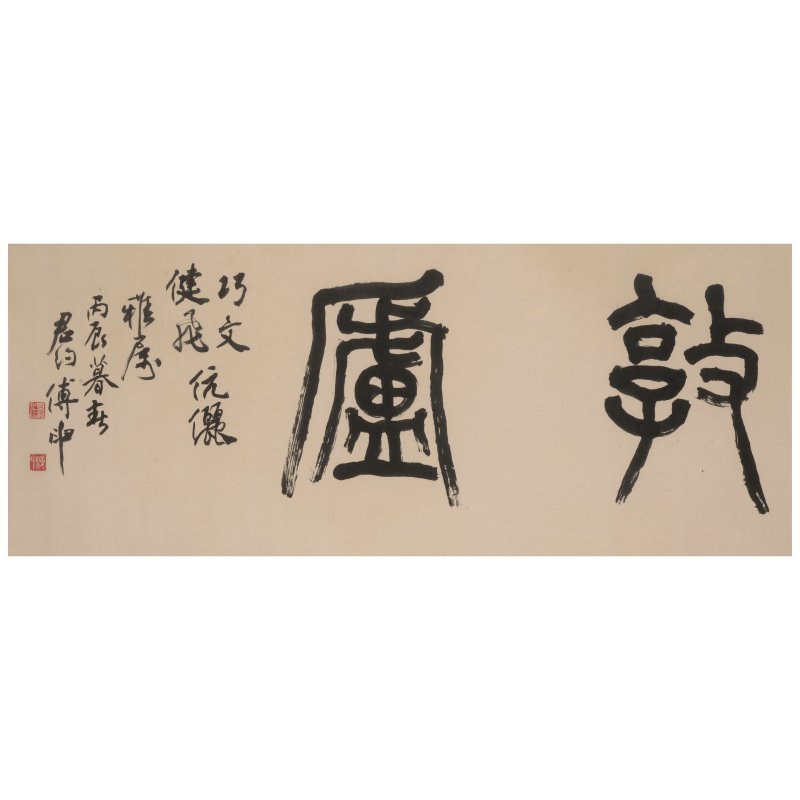 敦廬
巧文
健飛
伉儷
雅屬
丙辰暮春
君約傅申